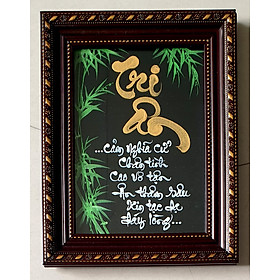 Tri
Ân
...Cảm Nghĩa Cử
Chân tình
Cao vô tận
Ơn thâm sâu
Xin tạc dạ
Đáy lòng...